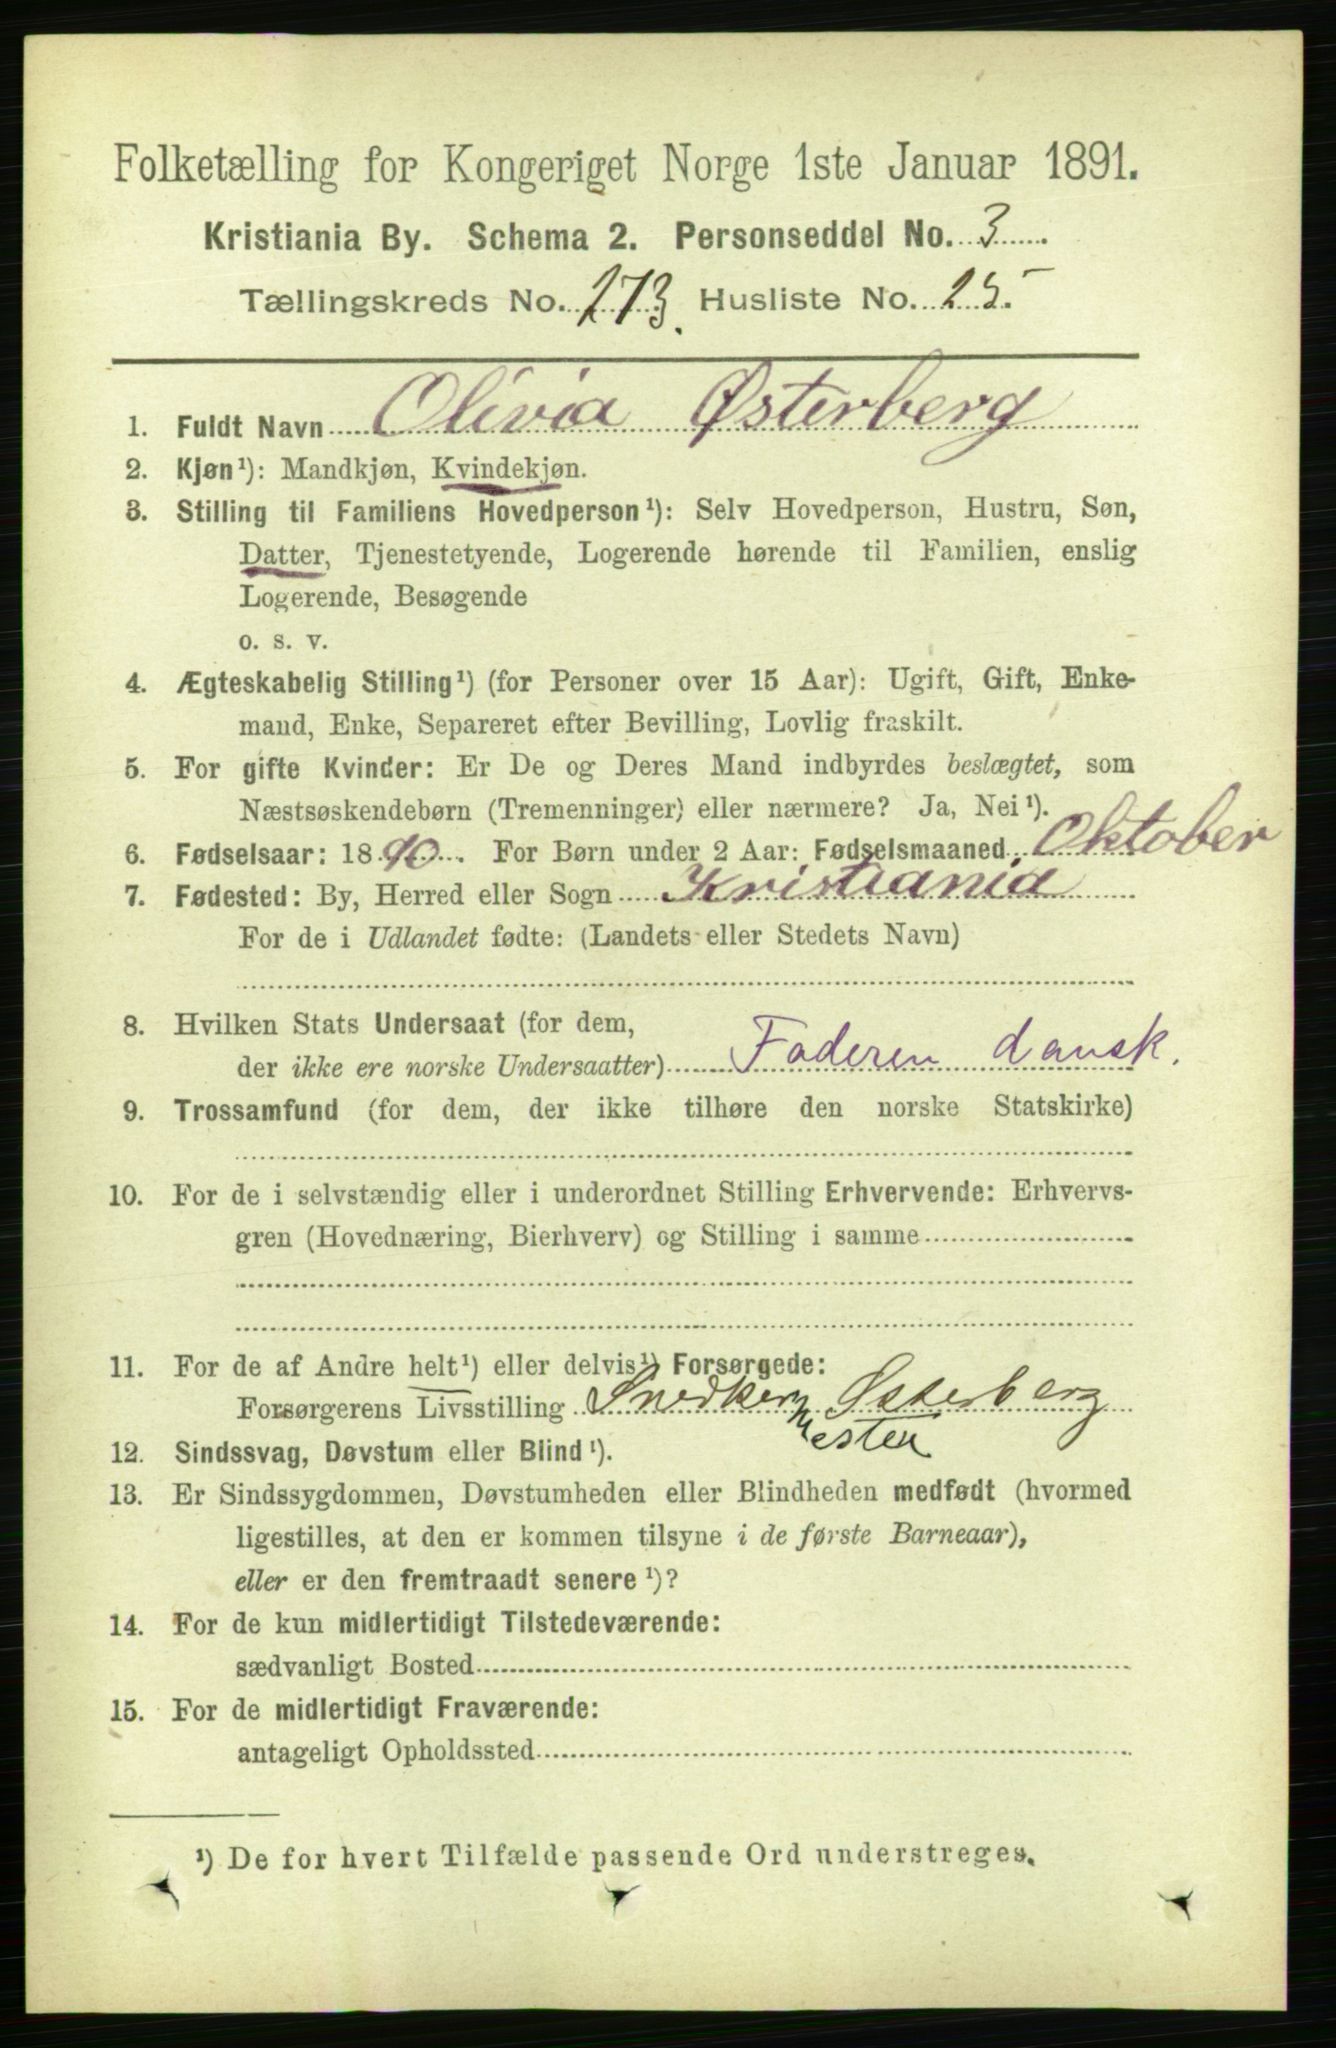 Folketælling for Kongeriget Norge 1ste Januar 1891.
Kristiania By. Schema 2. Personseddel No. 3
Tællingskreds No. 273. Husliste No. 25.
1. Fuldt Navn Olivia Østerberg
2. Kjøn¹): Mandkjøn, Kvindekjøn.
3. Stilling til Familiens Hovedperson¹): Selv Hovedperson, Hustru, Søn,
Datter, Tjenestetyende, Logerende hørende til Familien, enslig
Logerende, Besøgende
o. s. v.
4. Ægteskabelig Stilling¹) (for Personer over 15 Aar): Ugift, Gift, Enke-
mand, Enke, Separeret efter Bevilling, Lovlig fraskilt.
5. For gifte Kvinder: Er De og Deres Mand indbyrdes beslægtet, som
Næstsøskendebørn (Tremenninger) eller nærmere? Ja, Nei¹).
6. Fødselsaar: 1890. For Børn under 2 Aar: Fødselsmaaned Oktober
7. Fødested: By, Herred eller Sogn Kristiania
For de i Udlandet fødte: (Landets eller Stedets Navn)
8. Hvilken Stats Undersaat (for dem,
der ikke ere norske Undersaatter) Faderen dansk.
9. Trossamfund (for dem, der ikke tilhøre den norske Statskirke)
10. For de i selvstændig eller i underordnet Stilling Erhvervende: Erhvervs-
gren (Hovednæring, Bierhverv) og Stilling i samme
11. For de af Andre helt¹) eller delvis¹) Forsørgede:
Forsørgerens Livsstilling Snedker Østerberg
mester
12. Sindssvag, Døvstum eller Blind¹).
13. Er Sindssygdommen, Døvstumheden eller Blindheden medfødt (hvormed
ligestilles, at den er kommen tilsyne i de første Barneaar),
eller er den fremtraadt senere¹)?
14. For de kun midlertidigt Tilstedeværende:
sædvanligt Bosted
15. For de midlertidigt Fraværende:
antageligt Opholdssted
¹) De for hvert Tilfælde passende Ord understreges.